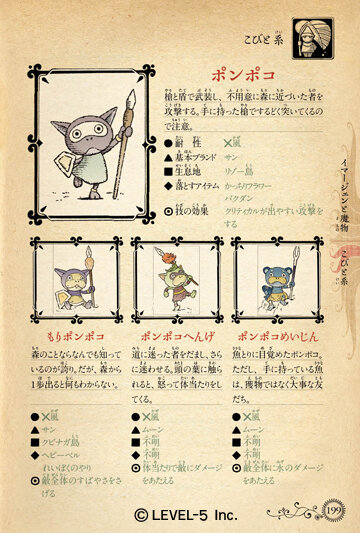 こびと系
ポンポコ
槍と盾で武装し、不用意に森に近づいた者を
攻撃する。手に持った槍でするどく突いてくるの
で注意。
●耐性 ×風
▲基本ブランド サン
■生息地 リゾー島
◆落とすアイテム かっちりフラワー
バクダン
◎技の効果 クリティカルが出やすい攻撃を
する
イマージェンと魔物
こびと系
もりポンポコ
森のことならなんでも知って
いるのが誇り。だが、森から
1歩出ると何もわからない。
●×風
▲サン
■クピナガ島
◆ヘビーベル
れいぼくのやり
◎敵全体のすばやさをさ
げる
ポンポコへんげ
道に迷った者をだまし、さら
に迷わせる。頭の葉に触ら
れると、怒って体当たりをし
てくる。
●×風
▲ムーン
■不明
◆不明
◎体当たりで敵にダメージ
をあたえる
ポンポコめいじん
魚とりに目覚めたポンポコ。
ただし、手に持っている魚
は、獲物ではなく大事な友
だち。
●×風
▲ムーン
■不明
◆不明
◎敵全体に水のダメージ
をあたえる
199
© LEVEL-5 Inc.